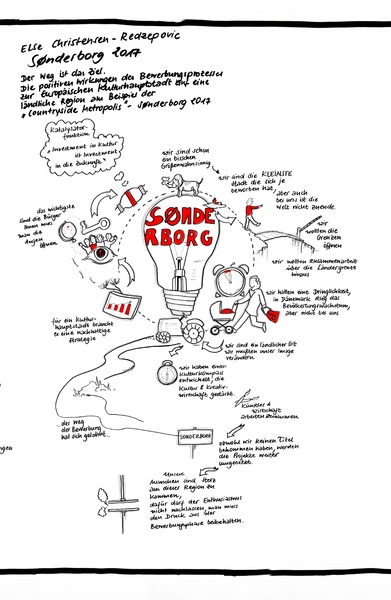 Else Christensen-Redzepovic
Sønderborg 2017
Der Weg ist das Ziel.
Die positiven Wirkungen des Bewerbungsprozesses
zur Europäischen Kulturhauptstadt auf eine
ländliche Region am Beispiel der
„Countryside Metropolis" - Sønderborg 2017
Katalysator-
funktion
„Investment in Kultur
ist Investment
in die Zukunft"
wir sind schon
ein bisschen
Größenwahnsinnig
wir sind die KLEINSTE
Stadt die sich je
beworben hat,
aber auch
bei uns ist die
Welt nicht zuende.
das wichtigste
sind die Bürger
Ihnen muss
man die
Augen
öffnen
SØNDE
RBORG
wir
wollen die
Grenzen
öffnen
wir wollen Zusammenarbeit
über die Ländergrenze
hinaus
wir hatten eine Dringlichkeit,
in Dänemark stieg das
Bevölkerungswachstum,
aber nicht bei uns
für ein Kultur-
hauptstadt braucht
es eine nachhaltige
Strategie
wir sind ein ländlicher Ort
wir mußten unser Image
verändern
wir haben einen
Kulturkompass
entwickelt, die
Kultur & Kreativ-
wirtschaft gestärkt.
Künstler &
Wirtschaft
arbeiten zusammen
...der Weg
der Bewerbung
hat sich gelohnt...
SØNDERBORG
obwohl wir keinen Titel
bekommen haben, wurden
die Projekte weiter
umgesetzt
Unsere
Menschen sind stolz
aus dieser Region zu
kommen,
dafür darf der Enthusiasmus
nicht nachlassen, man muss
den Druck aus der
Bewerbungsphase beibehalten.